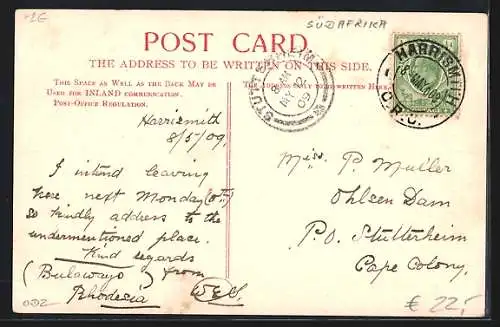 -2G
SÜDAFRIKA
POST CARD.
THE ADDRESS TO BE WRITTEN ON THIS SIDE.
This Space as Well as the Back May be
Used for INLAND communication.
Post-Office Regulation.
The Address Only to be Written Here.
STUTTERHEIM
AM
MY 12
09
HARRISMITH
8 MAY 09
O.R.C.
Harrismith
8/5/09.
I intend leaving
here next Monday
so kindly address to the
undermentioned place.
Kind regards
(Bulawayo) from
Rhodesia
Miss P. Muller
Ohlsen Dam
P.O. Stutterheim
Cape Colony.
€ 22,-